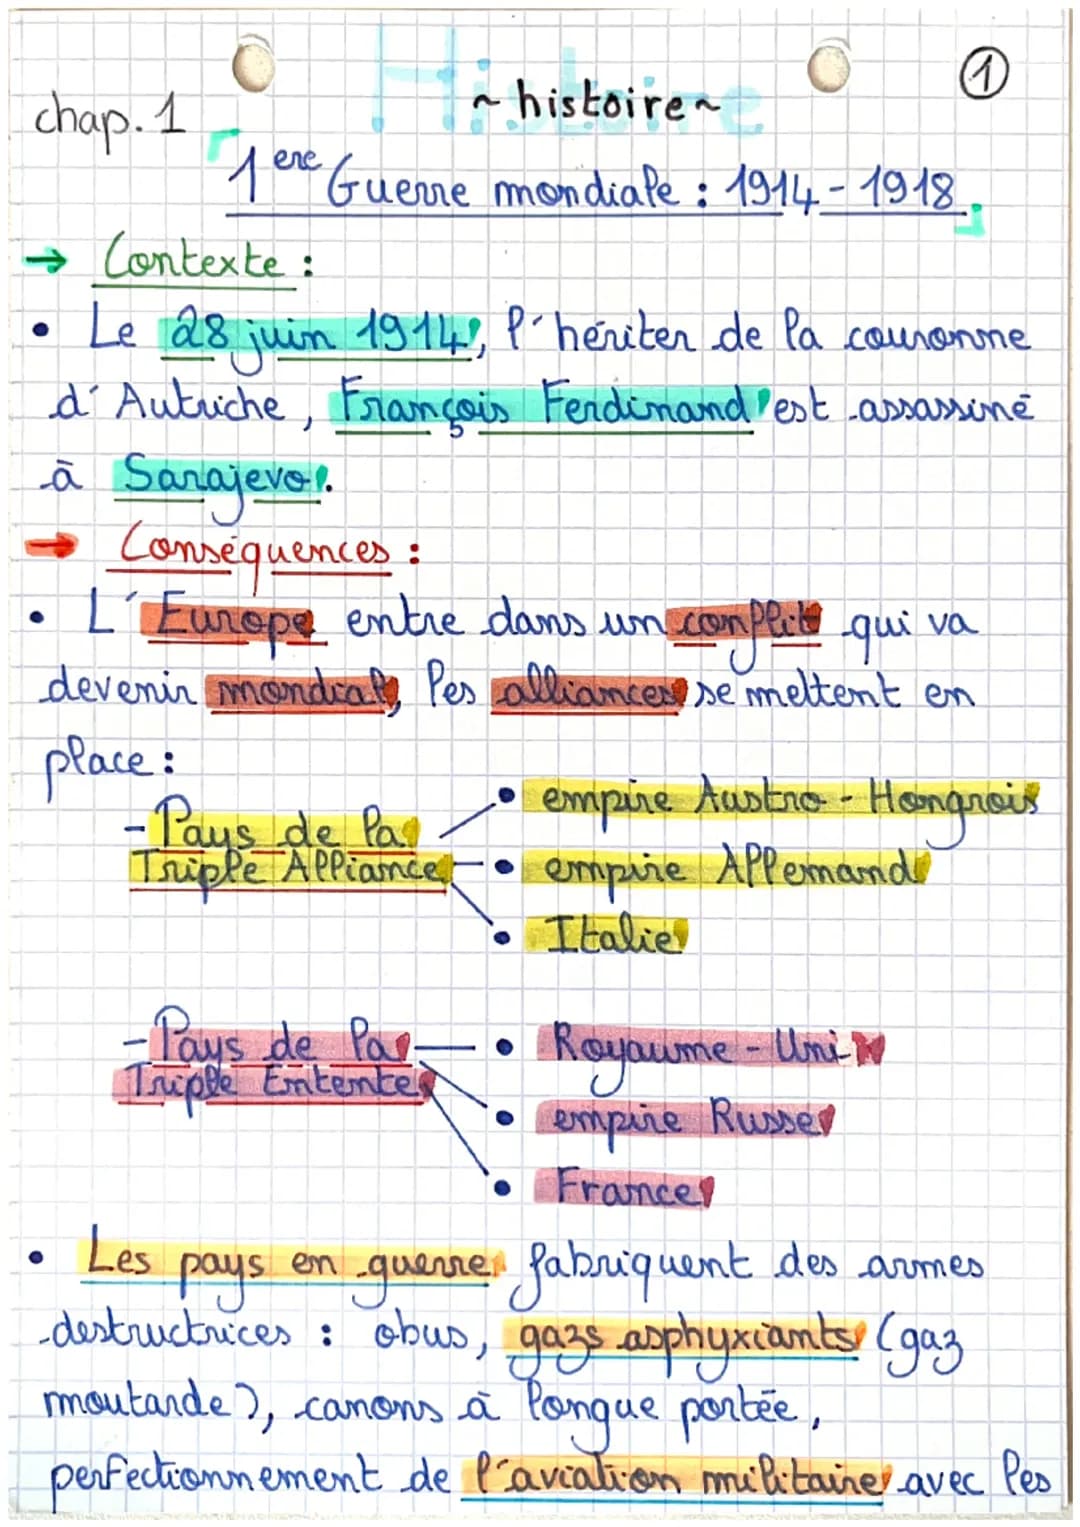 Histoire
~ histoire ~
1
chap. 1
1ere Guerre mondiale : 1914 - 1918
→ Contexte :
• Le 28 juin 1914, l'hériter de la couronne
d'Autriche, François Ferdinand est assassiné
à Sarajevo.
→ Conséquences :
• L'Europe entre dans un conflit qui va
devenir mondial, les alliances se mettent en
place :
- Pays de la
Triple Alliance
• empire Austro-Hongrois
• empire Allemand
• Italie
- Pays de la
Triple Entente
• Royaume-Uni
• empire Russe
• France
• Les pays en guerre fabriquent des armes
destructrices : obus, gazs asphyxiants (gaz
moutarde), canons à longue portée,
perfectionnement de l'aviation militaire avec les